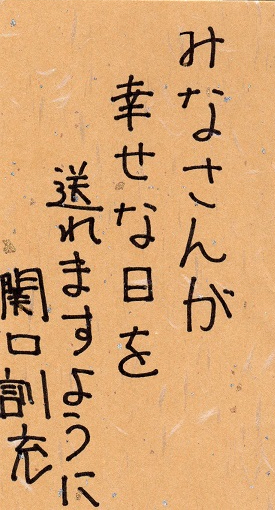 みなさんが
幸せな日を
送れますように
関口割充